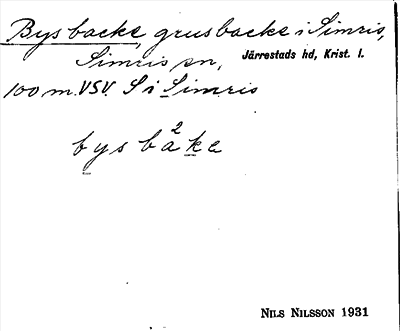 Bysbacke, grusbacke i Simris,
Simris sn, Järrestads hd, Krist. l.
100 m. VSV. S i Simris
bysba²ke
NILS NILSSON 1931